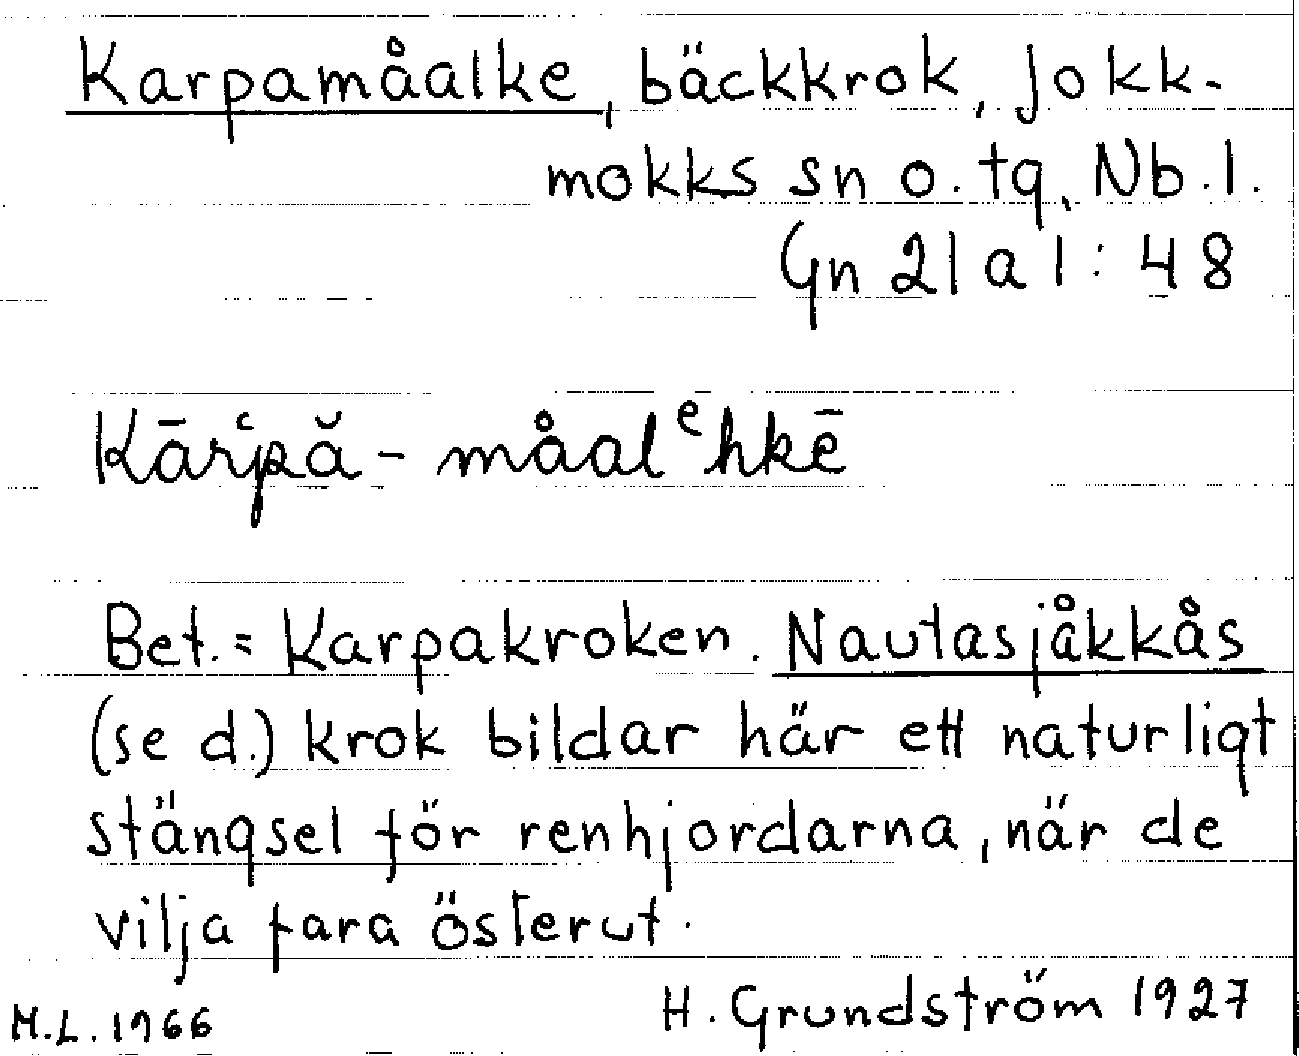 Karpamåalke, bäckkrok, Jokk-
mokks sn o. tg, Nb. l.
Gn 21 a 1: 48
Kārʿpă - måalᵉhkē
Bet. = Karpakroken. Nautasjåkkås
(se d.) krok bildar här ett naturligt
stängsel för renhjordarna, när de
vilja fara österut.
H. Grundström 1927
M.L. 1966